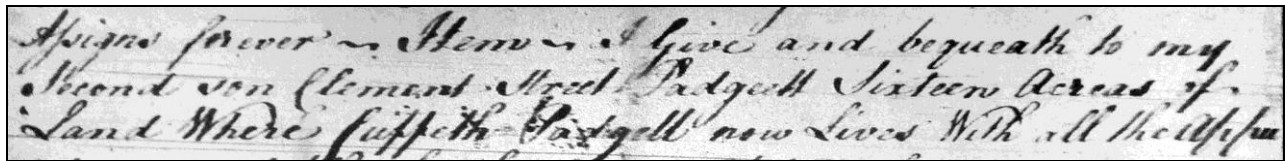 Assigns forever ~ Item ~ I Give and bequeath to my
Second son Clement Street Padgett Sixteen Acreas of
Land Where Cuffeth Padgett now Lives With all the Appu